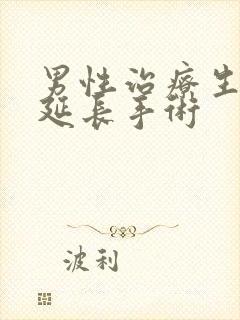 男性治療生
延長手術
波利